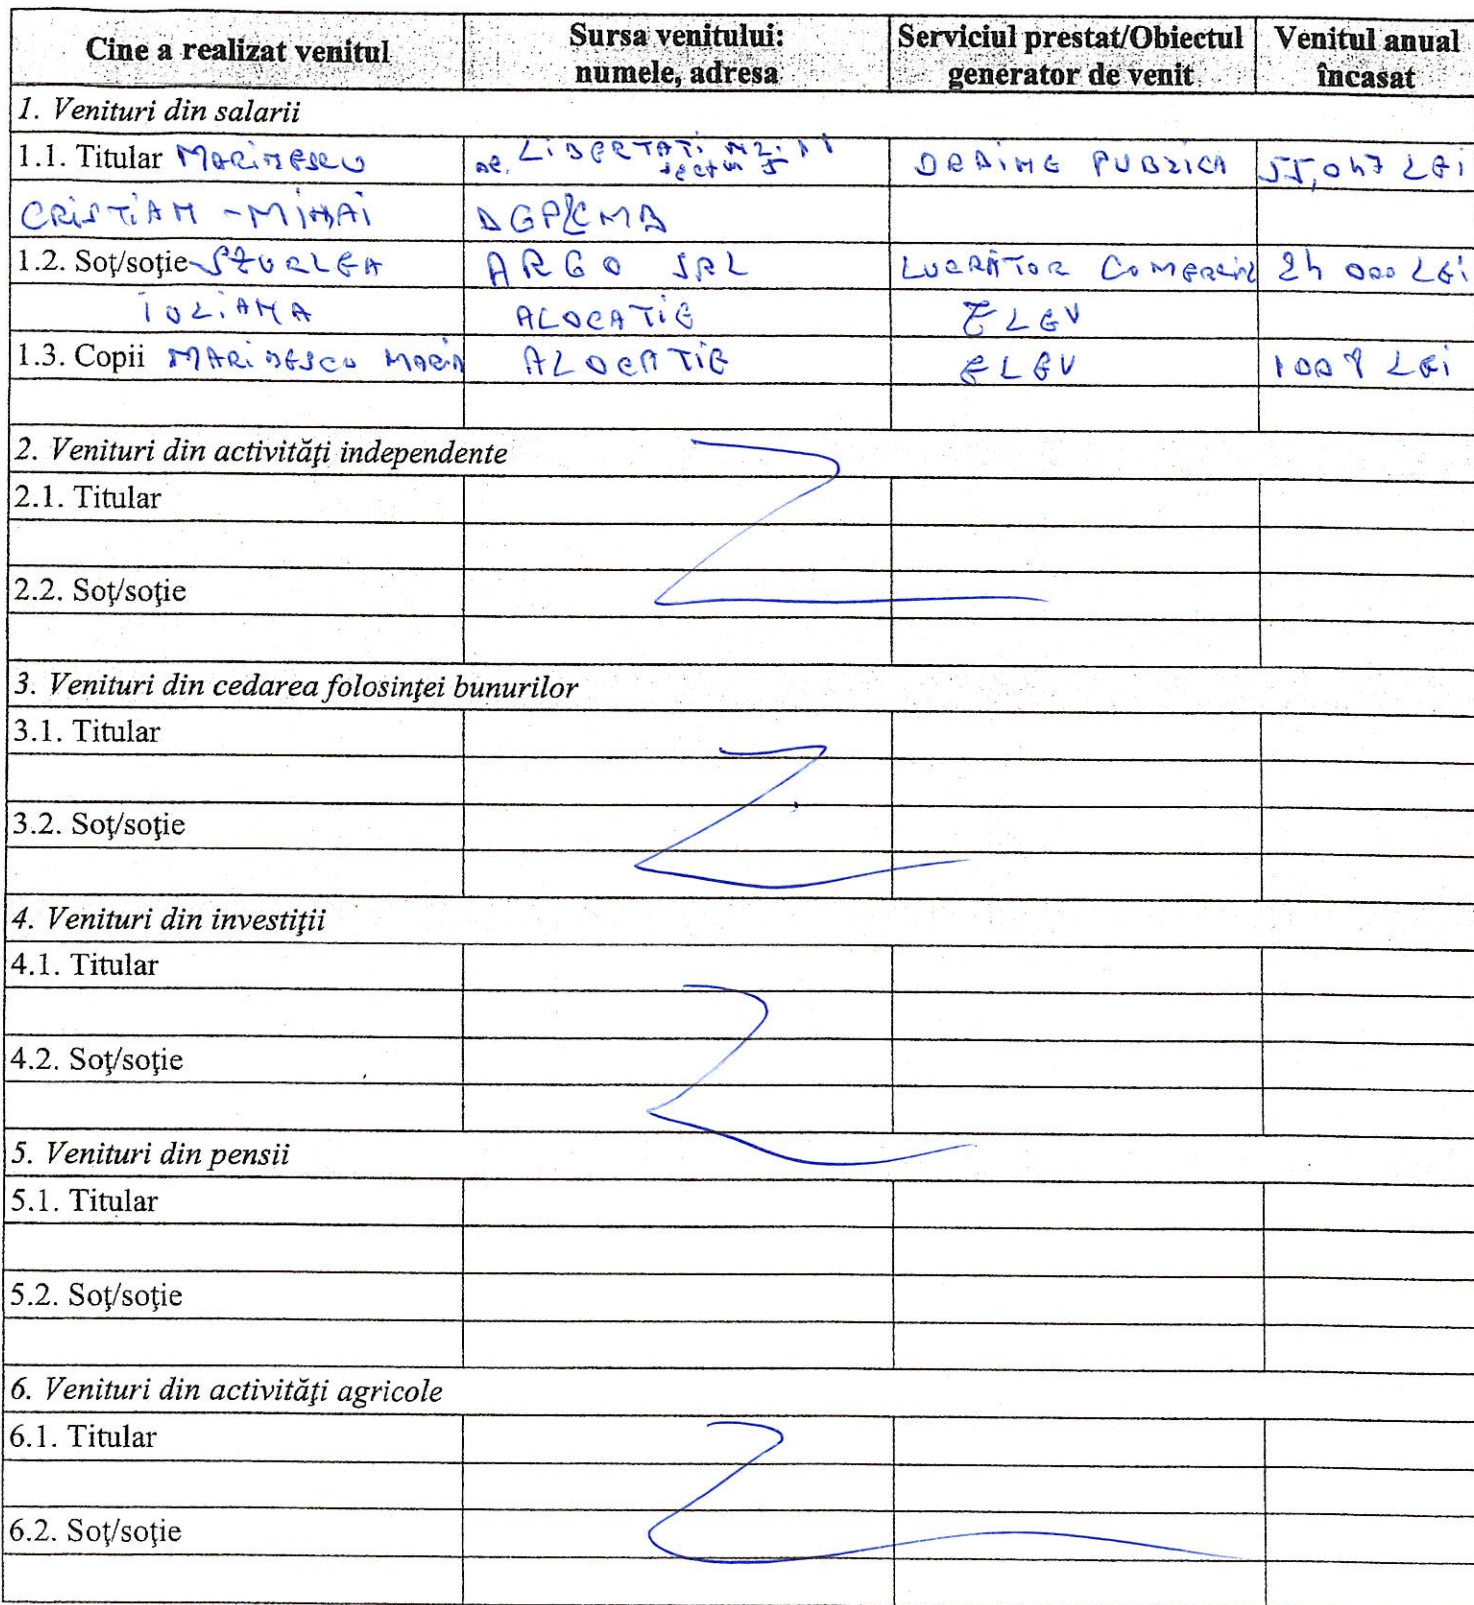 Cine a realizat venitul | Sursa venitului: numele, adresa | Serviciul prestat/Obiectul generator de venit | Venitul anual încasat
1. Venituri din salarii
1.1. Titular MARINESCU | LIBERTATI sector 5 | ORDINE PUBLICA | LEI
CRISTIAN - MIHAI | DGPLCMB
1.2. Soţ/soţie STURLEA | ARGO SRL | LUCRĂTOR COMERCIAL | 24 000 LEI
IULIANA | ALOCATIE | ELEV
1.3. Copii MARINESCU MARIA | ALOCATIE | ELEV | LEI
2. Venituri din activităţi independente
2.1. Titular
2.2. Soţ/soţie
3. Venituri din cedarea folosinţei bunurilor
3.1. Titular
3.2. Soţ/soţie
4. Venituri din investiţii
4.1. Titular
4.2. Soţ/soţie
5. Venituri din pensii
5.1. Titular
5.2. Soţ/soţie
6. Venituri din activităţi agricole
6.1. Titular
6.2. Soţ/soţie